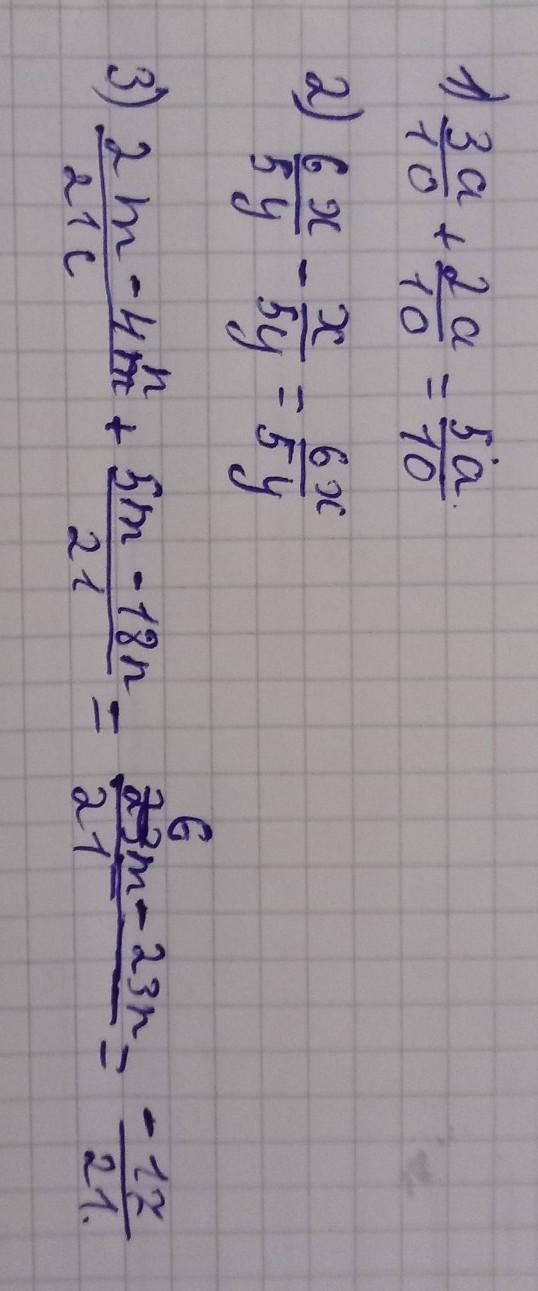 1) 3a/10 + 2a/10 = 5a/10
2) 6x/5y - x/5y = 6x/5y
3) 2m - 4n/21 + 5m - 18n/21 = 6m - 23n/21 = -17/21.